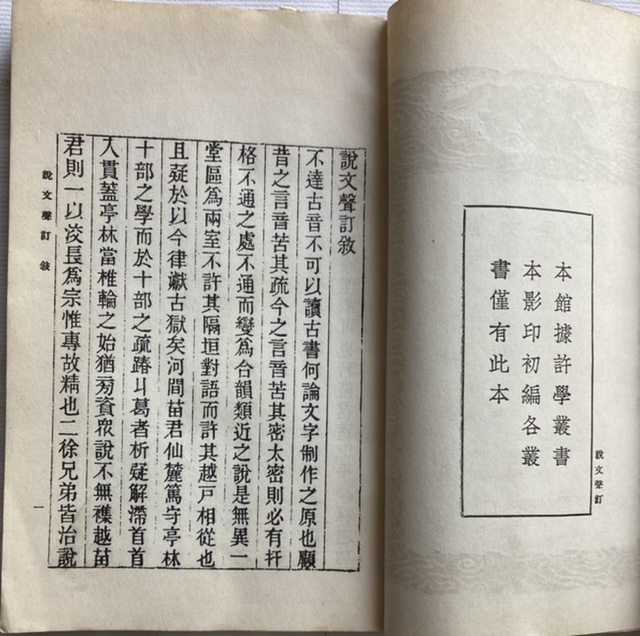 本館據許學叢書
本影印初編各叢
書僅有此本
說文聲訂
說文聲訂敘
不達古音不可以讀古書何論文字制作之原也顧
昔之言音苦其疏今之言音苦其密太密則必有扞
格不通之處不通而變爲合韻類近之說是無異一
堂區爲兩室不許其隔垣對語而許其越戶相從也
且疑於以今律讞古獄矣河間苗君仙麓篤守亭林
十部之學而於十部之疏踳丩葛者析疑解滯首首
人貫蓋亭林當椎輪之始猶旁資衆說不無襍越苗
君則一以洨長爲宗惟專故精也二徐兄弟皆治說
說文聲訂 敘
一